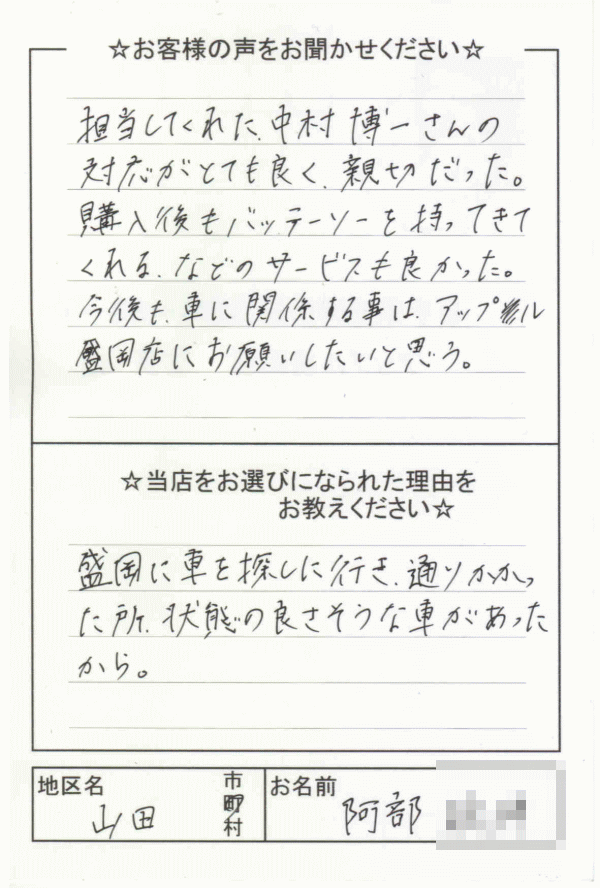 ☆お客様の声をお聞かせください☆
担当してくれた、中村博一さんの
対応がとても良く、親切だった。
購入後もバッテーリーを持ってきて
くれる、などのサービスも良かった。
今後も、車に関係する事は、アップル
盛岡店にお願いしたいと思う。
☆当店をお選びになられた理由を
お教えください☆
盛岡に車を探しに行き、通りかかっ
た所、状態の良さそうな車があった
から。
地区名 山田 市町村 お名前 阿部